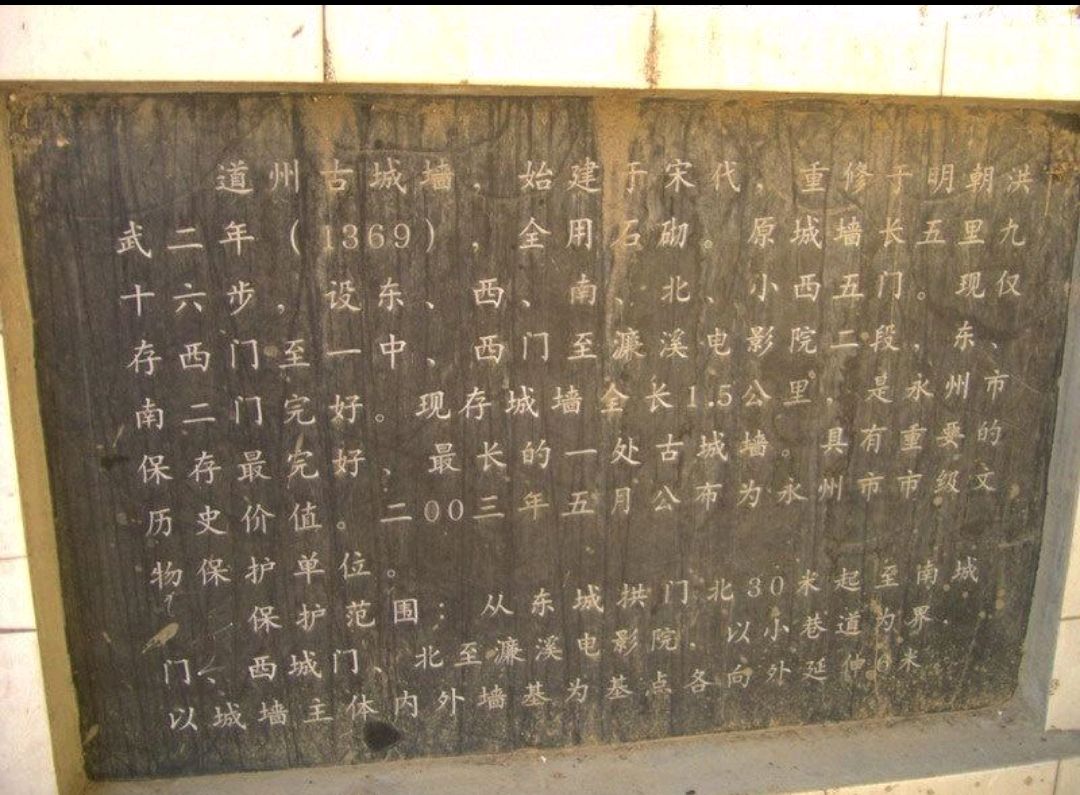 道州古城墙，始建于宋代，重修于明朝洪
武二年（1369），全用石砌。原城墙长五里九
十六步，设东、西、南、北、小西五门。现仅
存西门至一中、西门至濂溪电影院二段，东、
南二门完好。现存城墙全长1.5公里，是永州市
保存最完好、最长的一处古城墙。具有重要的
历史价值。二00三年五月公布为永州市市级文
物保护单位。
保护范围：从东城拱门北30米起至南城
门、西城门、北至濂溪电影院，以小巷道为界，
以城墙主体内外墙基为基点各向外延伸6米